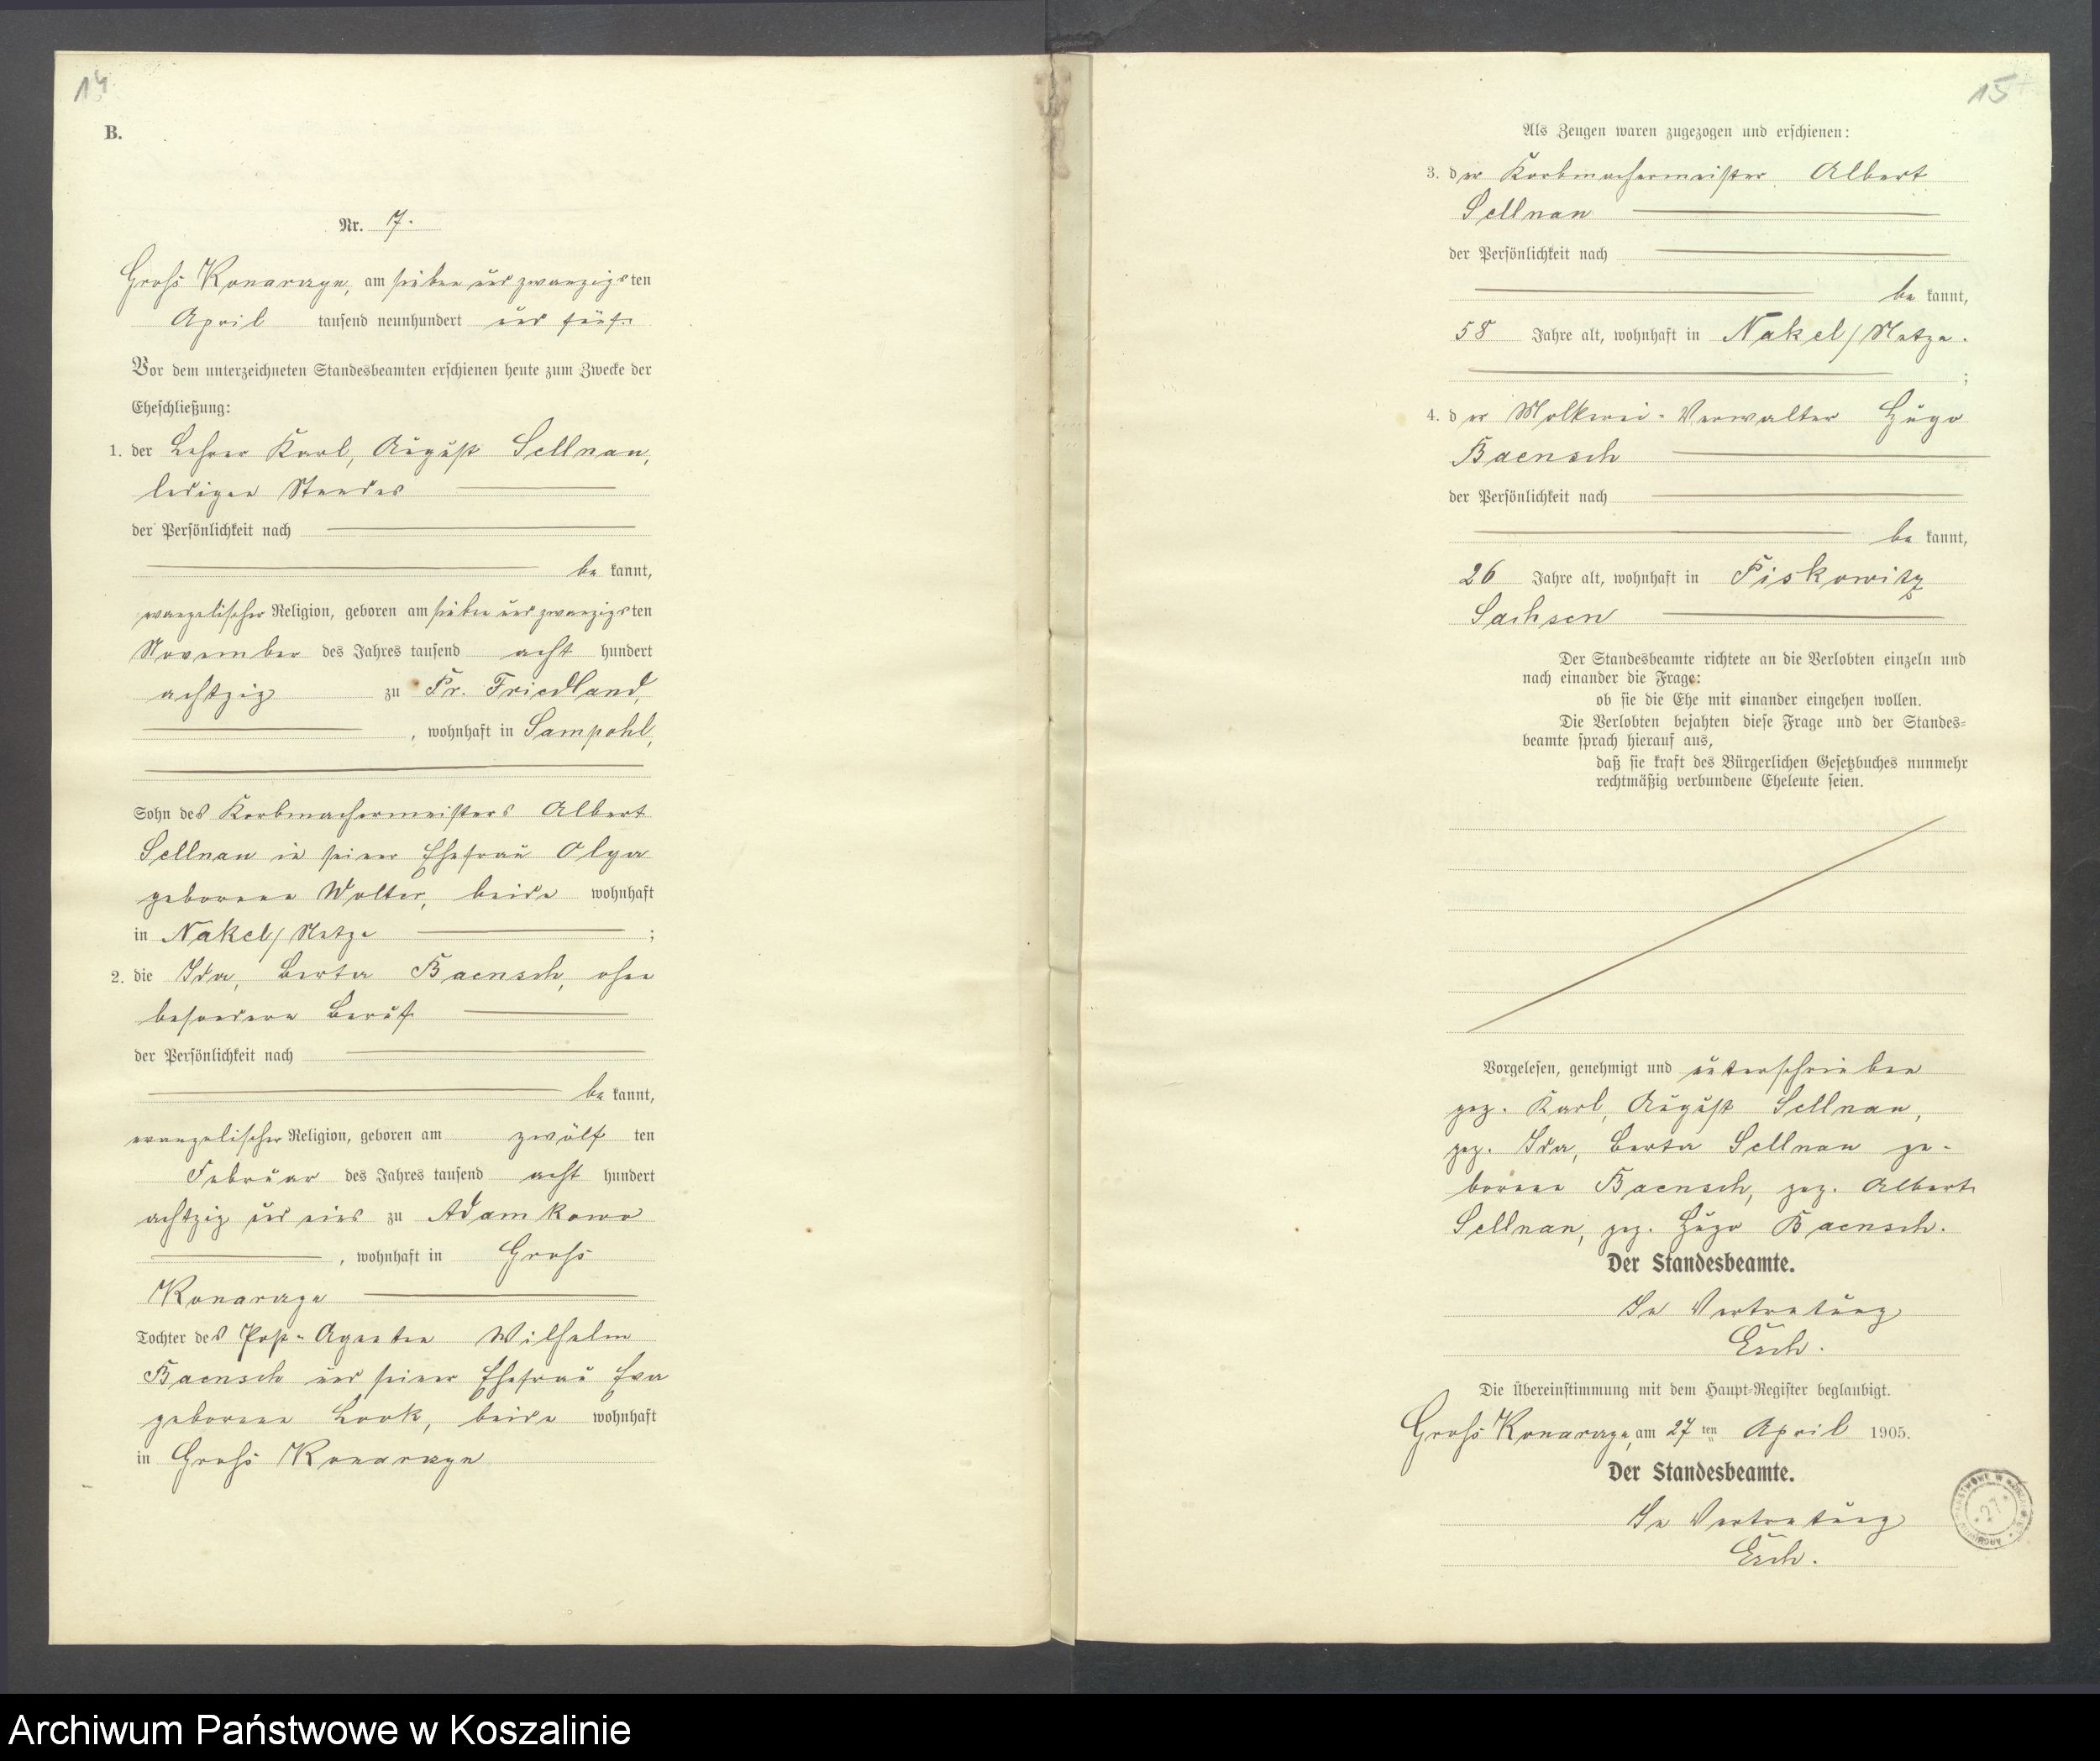 14
B.
Nr. 7.
Gross Konarzyn, am sieben und zwanzigsten
April tausend neunhundert und fünf.
Vor dem unterzeichneten Standesbeamten erschienen heute zum Zwecke der
Eheschließung:
1. der Lehrer Karl, August Sellnau,
ledigen Standes
der Persönlichkeit nach
be kannt,
evangelischer Religion, geboren am sieben und zwanzigsten
November des Jahres tausend acht hundert
achtzig zu Pr. Friedland,
, wohnhaft in Sampohl,
Sohn des Korbmachermeisters Albert
Sellnau u seiner Ehefrau Olga
geborene Wolter, beide wohnhaft
in Nakel/Netze ;
2. die Ida, Berta Baensch, ohne
besondern Beruf
der Persönlichkeit nach
be kannt,
evangelischer Religion, geboren am zwölf ten
Februar des Jahres tausend acht hundert
achtzig und eins zu Adamkowo
, wohnhaft in Gross
Konarzyn
Tochter des Post-Agenten Wilhelm
Baensch und seiner Ehefrau Eva
geborene Look, beide wohnhaft
in Gross Konarzyn
15
Als Zeugen waren zugezogen und erschienen:
3. der Korbmachermeister Albert
Sellnau
der Persönlichkeit nach
be kannt,
58 Jahre alt, wohnhaft in Nakel/Netze.
;
4. der Molkerei-Verwalter Hugo
Baensch
der Persönlichkeit nach
be kannt,
26 Jahre alt, wohnhaft in Piskowitz
Sachsen
Der Standesbeamte richtete an die Verlobten einzeln und
nach einander die Frage:
ob sie die Ehe mit einander eingehen wollen.
Die Verlobten bejahten diese Frage und der Standes=
beamte sprach hierauf aus,
daß sie kraft des Bürgerlichen Gesetzbuches nunmehr
rechtmäßig verbundene Eheleute seien.
Vorgelesen, genehmigt und unterschrieben
gez. Karl, August Sellnau,
gez. Ida, Berta Sellnau ge-
borene Baensch, gez. Albert
Sellnau, gez. Hugo Baensch.
Der Standesbeamte.
In Vertretung
Esch.
Die Übereinstimmung mit dem Haupt-Register beglaubigt.
Gross Konarzyn, am 27 ten April 1905.
Der Standesbeamte.
In Vertretung
Esch.
27
Archiwum Państwowe w Koszalinie